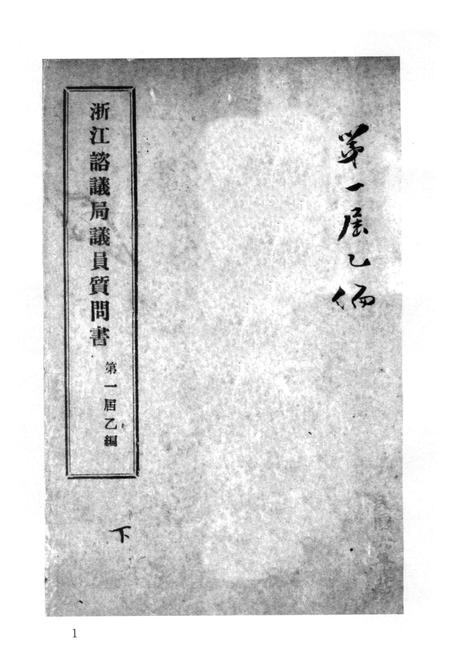 第一届乙编
浙江諮議局議員質問書
第一屆乙編
下
1